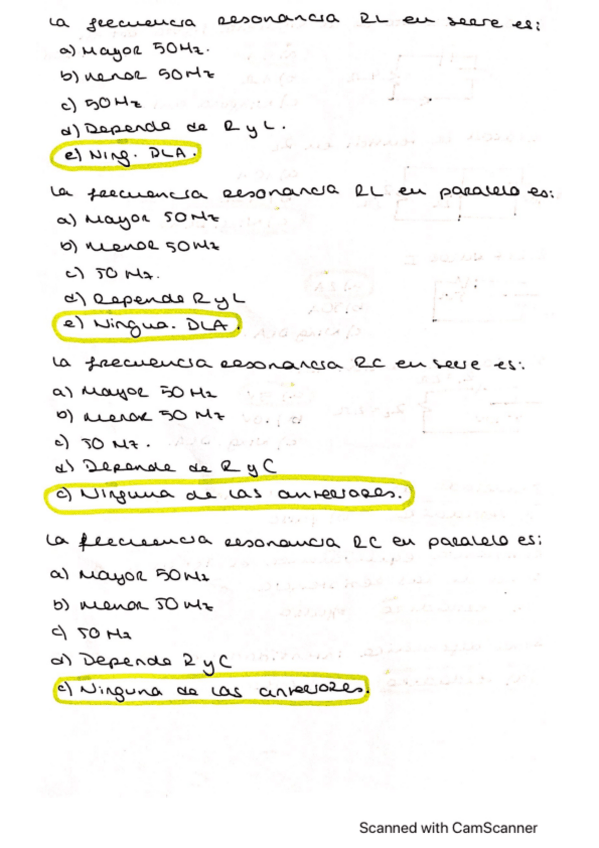 La frecuencia resonancia RL en serie es:
a) Mayor 50Hz.
b) Menor 50Hz
c) 50Hz
d) Depende de R y L.
e) Ning. DLA.
La frecuencia resonancia RL en paralelo es:
a) Mayor 50Hz
b) Menor 50Hz
c) 50 Hz.
d) Depende R y L
e) Ningua. DLA.
La frecuencia resonancia RC en serie es:
a) Mayor 50Hz
b) Menor 50Hz
c) 50 Hz.
d) Depende de R y C
e) Ninguna de las anteriores.
La frecuencia resonancia RC en paralelo es:
a) Mayor 50Hz
b) Menor 50Hz
c) 50Hz
d) Depende R y C
e) Ninguna de las anteriores.
Scanned with CamScanner